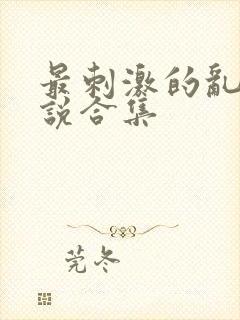 最刺激的亂
說合集
莞冬